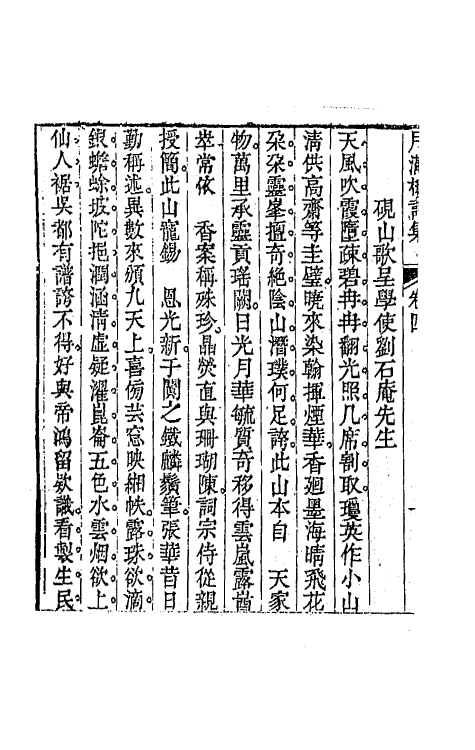 月滿樓詩集 卷四 一
硯山歌呈學使劉石庵先生
天風吹霞墮疎碧冉冉翻光照几席割取瓊英作小山
淸供高齋等圭璧曉來染翰揮煙華香廻墨海晴飛花
朶朶靈峯擅奇絶陰山潛璞何足誇此山本自　天家
物萬里承靈貢瑤闕日光月華毓質奇移得雲嵐露崷
崒常依　香案稱殊珍晶熒直與珊瑚陳詞宗侍從親
授簡此山寵錫　恩光新于闐之鐵麟鬚筆張華昔日
勤稱述異數來頒九天上喜傍芸窓映緗帙露珠欲滴
銀蟾蜍坡陀挹潤涵淸虛疑濯崑崙五色水雲烟欲上
仙人裾吳都有譜誇不得好與帝鴻留欵識看製生民